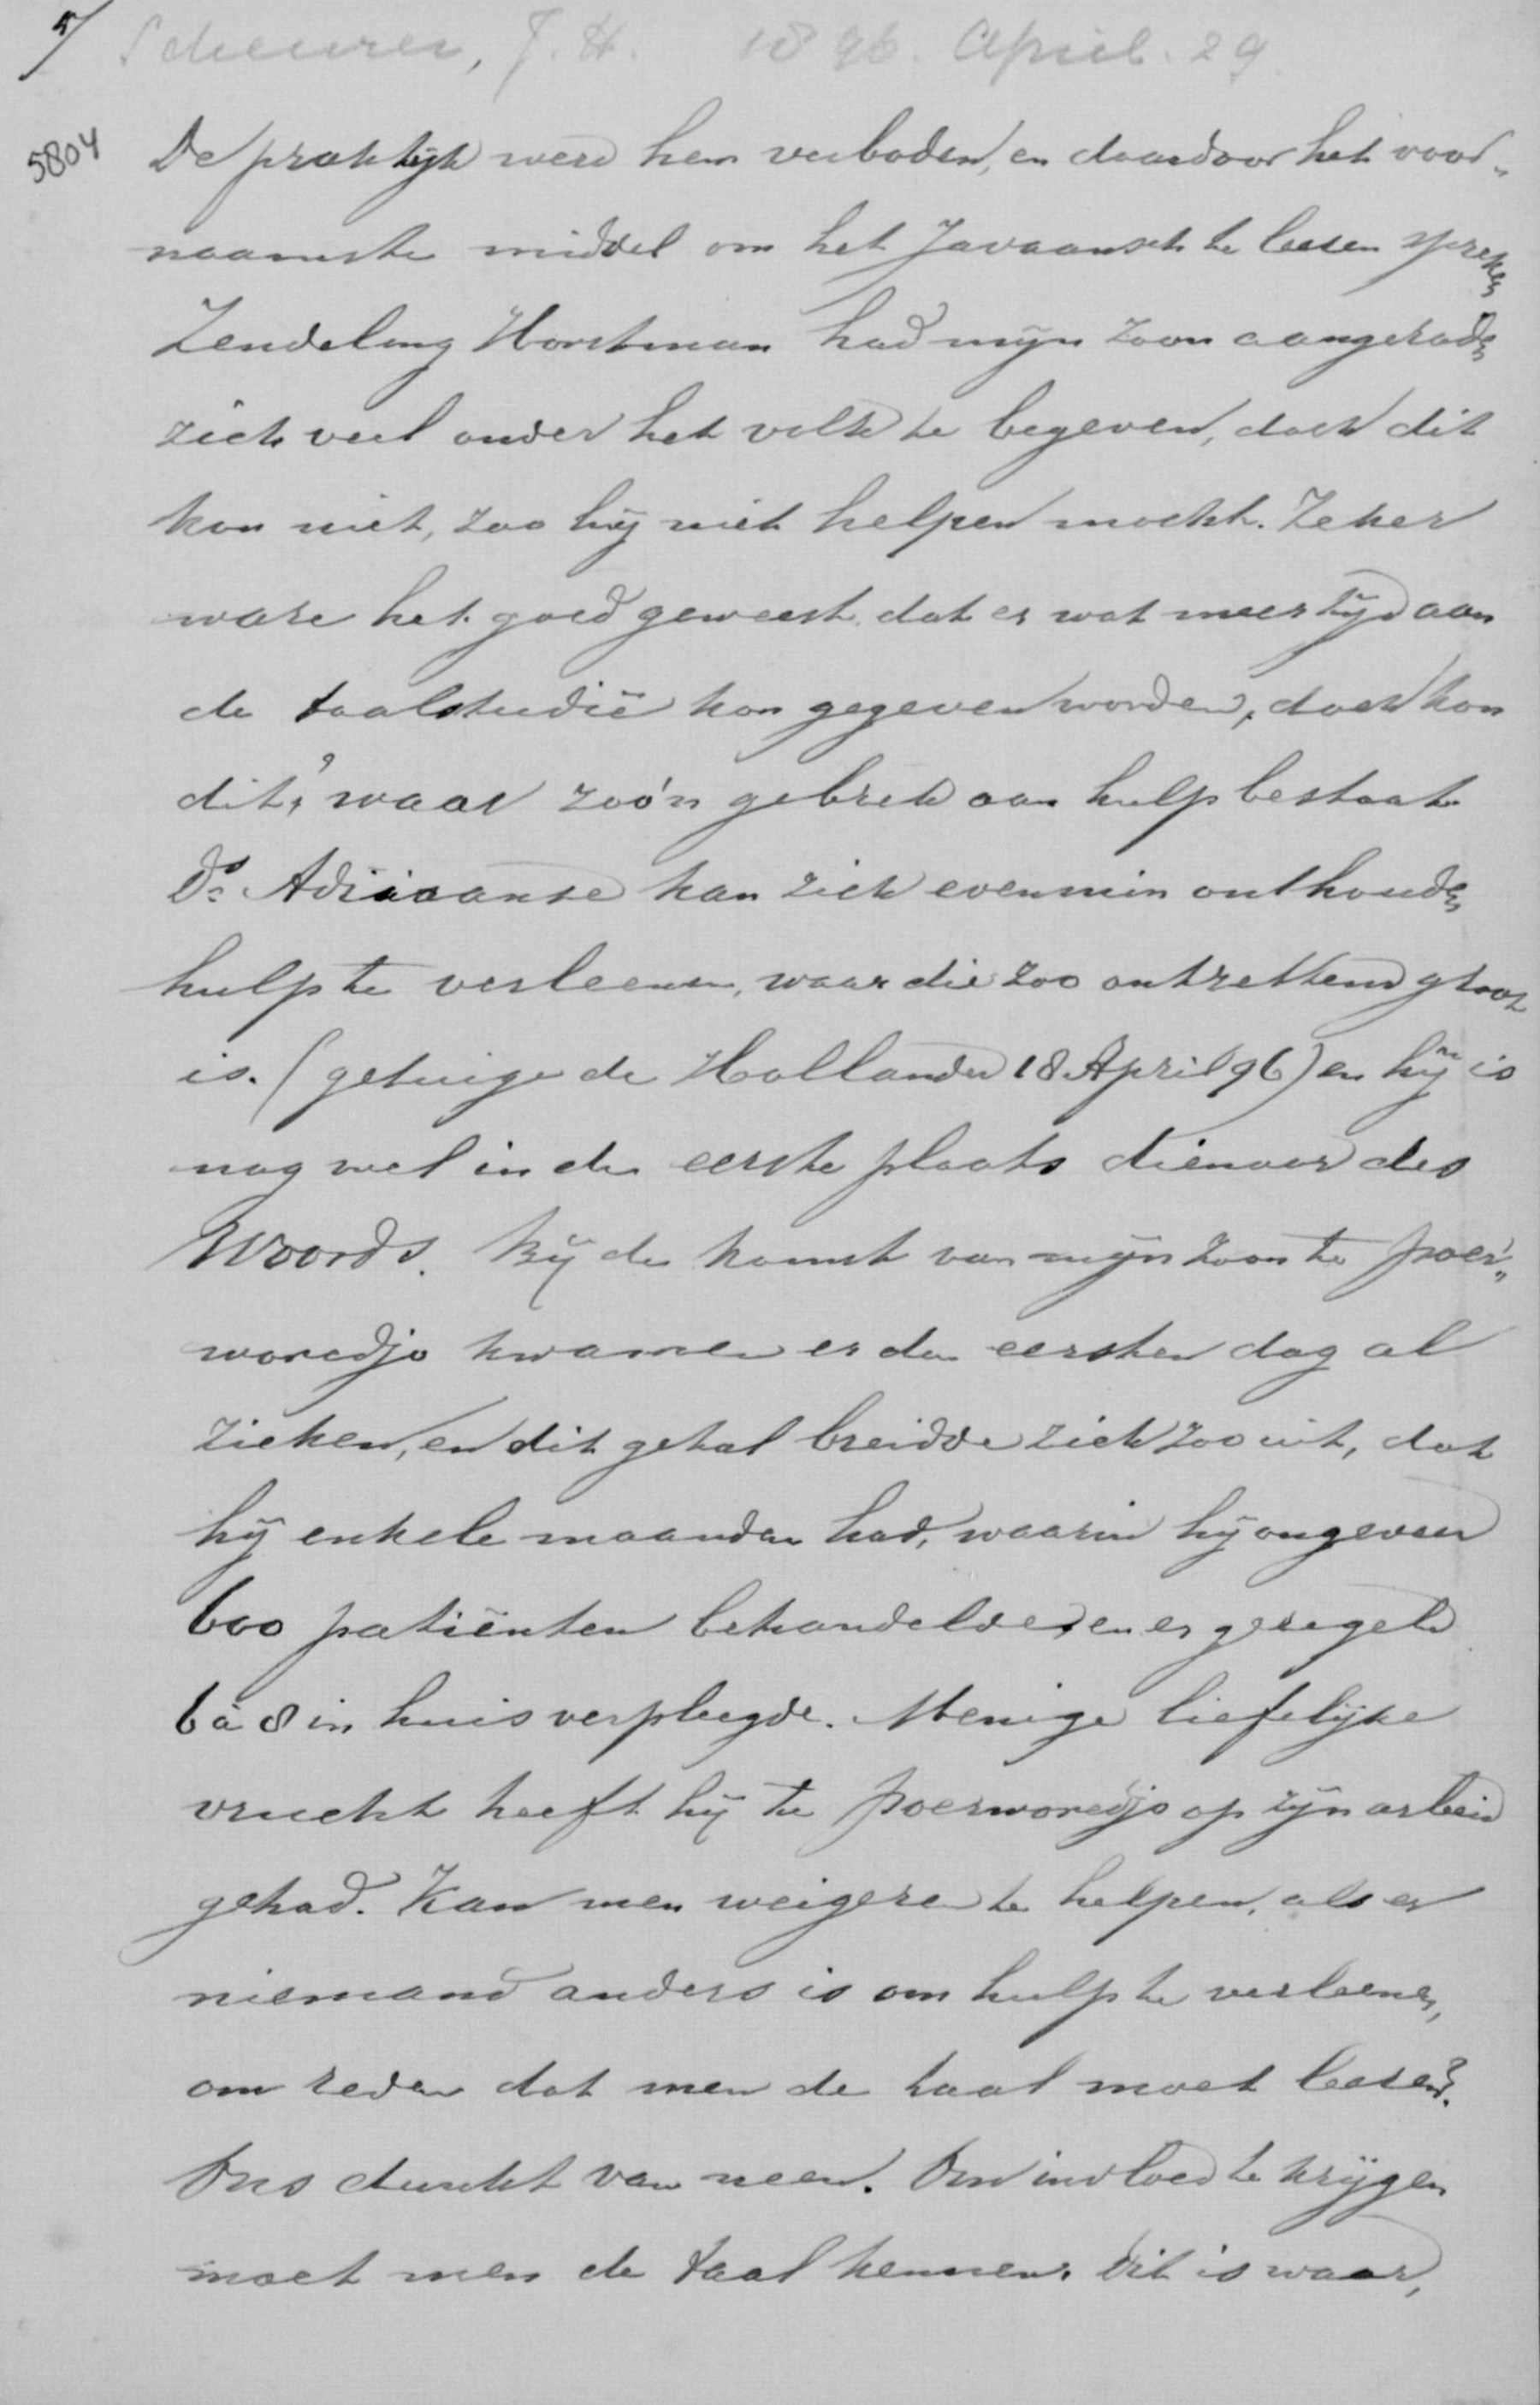 5/ Scheurer, J. H. 1896. April. 29
5804
De praktijk werd hem verboden, en daardoor het voor-
naamste middel om het Javaansch te leeren spreken
Zendeling Horstman had mijn zoon aangeraden
zich veel onder het volk te begeven, doch dit
kon niet, zoo hij niet helpen mocht. Zeker
ware het goed geweest, dat er wat meer tijd aan
de taalstudie kon gegeven worden, doch kon
dit, waar zoo'n gebrek aan hulp bestaat?
Ds Adriaanse kan zich evenmin onthouden
hulp te verleenen, waar die zoo ontzettend groot
is. (getuige de Hollander 18 April 96) en hij is
nog wel in de eerste plaats dienaar des
Woords. Bij de komst van mijn zoon te Poer-
woredjo kwamen er den eersten dag al
zieken, en dit getal breidde zich zoo uit, dat
hij enkele maanden had, waarin hij ongeveer
600 patiënten behandelde, en er geregeld
6 à 8 in huis verpleegde. Menige liefelijke
vrucht heeft hij te Poerworedjo op zijn arbeid
gehad. Kan men weigeren te helpen, als er
niemand anders is om hulp te verleenen,
om reden dat men de taal moet leeren?
Ons dunkt van neen. Om invloed te krijgen
moet men de taal kennen. Dit is waar,